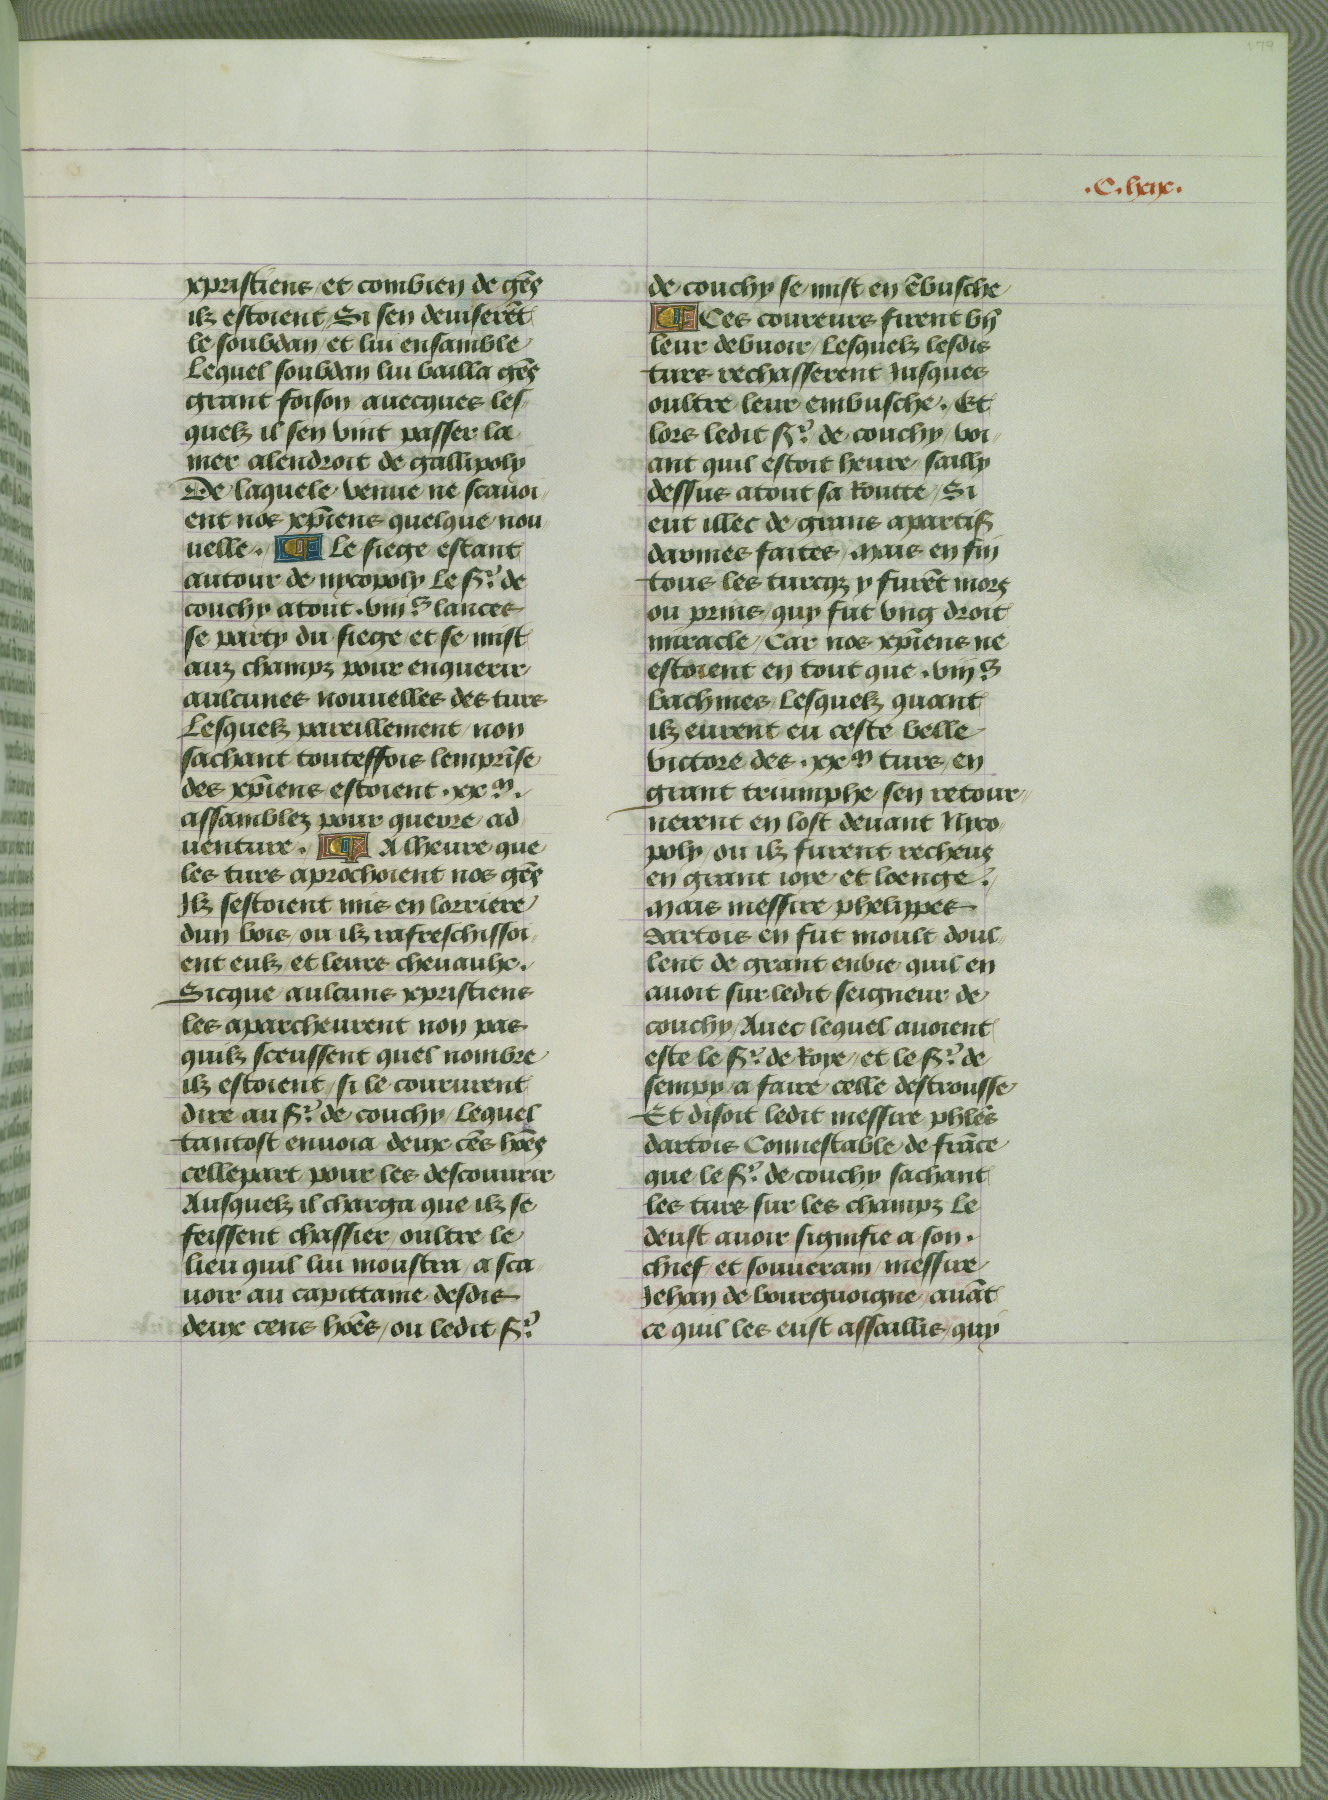 179
.C. lxix.
xpristiens / et combien de gēs
ilz estoient / Si sen deviserēt
le soubdan / et lui ensamble /
Lequel soubdan lui bailla gēs
grant foison avecques les /
quelz il sen vint passer la
mer alendroit de gallipoly
De laquele venue ne scavoi /
ent nos xp̄iens quelque nou
velle . Le siege estant
autour de nycopoly le sr de
couchy atout . viii c lances
se party du siege et se mist
aux champz pour enquerir
aulcunes nouvelles des turs
Lesquelz pareillement non
sachant touteffois lemprinse
des xp̄iens estoient . xx m .
assamblez pour querre ad
venture . A lheure que
les turs aprochoient nos gēs
Ilz sestoient mis en lorriere
dun bois / ou ilz rafreschissoi /
ent eulz / et leurs chevaulx .
Sicque aulcuns xpristiens
les aparcheurent non pas
quilz sceussent quel nombre
ilz estoient / si le coururent
dire au sr de couchy / Lequel
tantost envoia deux cēs hōēs
cellepart pour les descouvrir
Ausquelz il charga que ilz se
feissent chassier / oultre le
lieu quil lui moustra / a sca /
voir au capittaine desdis
deux cens hōēs / ou ledit sr
de couchy se mist en ēbusche
Ces coureurs firent bn̄
leur debvoir / Lesquelz lesdis
turs rechasserent Jusques
oultre leur embusche . Et
lors ledit sr de couchy / voi /
ant quil estoit heure / sailly
dessus atout sa Routte / Si
eut illec de grans apartis
darmes faites / Mais en fin
tous les turcqz y furēt mors
ou prins / quy fut ung droit
miracle / Car nos xp̄iens ne
estoient en tout que . viii c
bachines / Lesquelz quant
ilz eurent eu ceste belle
victore des . xx m turs / en
grant triumphe sen retour /
nerent en lost devant Nyco /
poly / ou ilz furent recheus
en grant ioye / et loenge .
Mais messire phelippes
dartois en fut moult doul /
lent de grant envie quil en
avoit sur ledit seigneur de
couchy / Avec lequel avoient
este le sr de Roye / et le sr de
sempy / a faire celle destrousse
Et disoit ledit messire phl̄es
dartois Connestable de frāce
que le sr de couchy sachant
les turs sur les champz Le
deust avoir signifie a son .
chief / et souverain / messire
Jehan de bourguoigne / avāt
ce quil les eust assaillis / quy